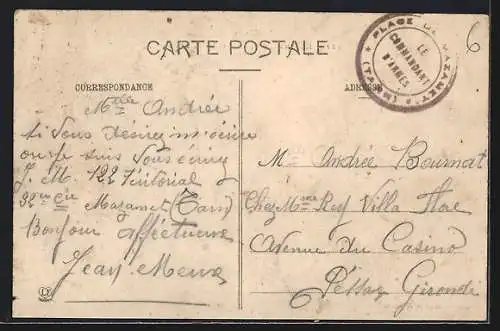 CARTE POSTALE
PLACE DE MAZAMET (TARN)
LE
COMMANDANT
D'ARMES
6
CORRESPONDANCE
ADRESSE
Mlle Andrée
si vous désirez m'écrire
je suis
J. M. 122 Territorial
32me Cie Mazamet (Tarn)
Bonjour affectueux
Jean
Mlle Andrée
Chez Mme Rey Villa
Avenue du Casino
Pessac Gironde